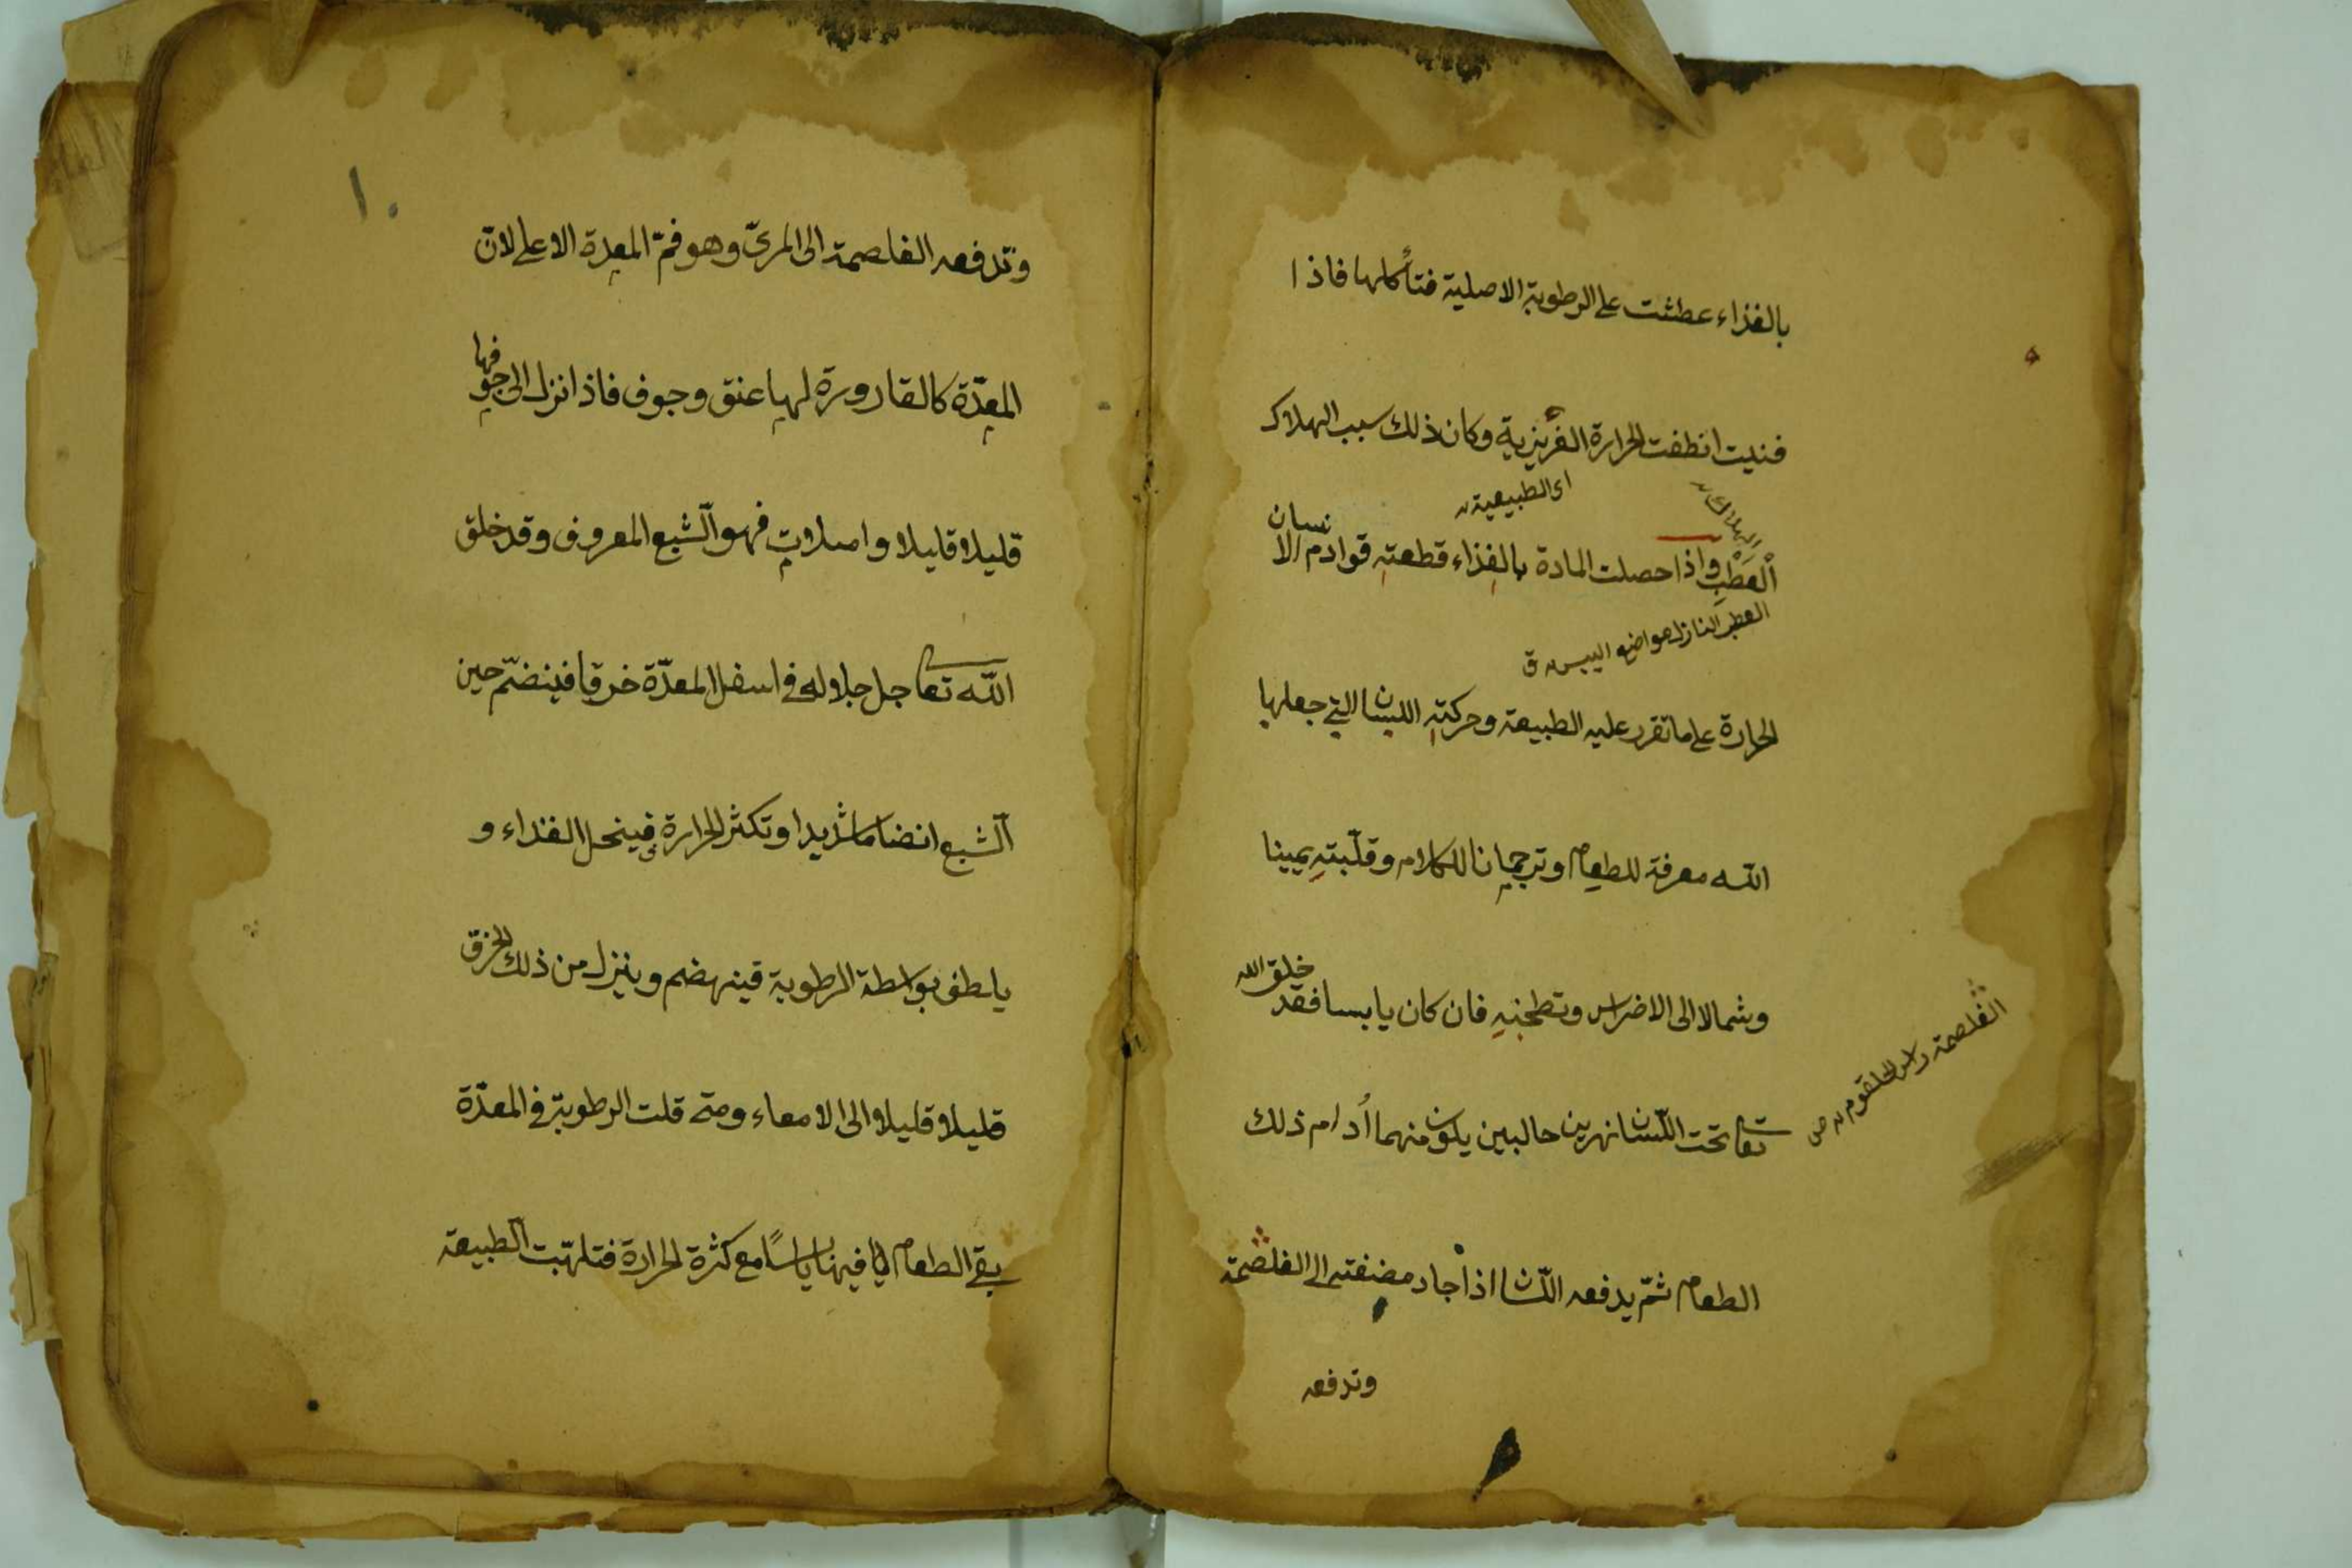 بالغذاء عطشت على الرطوبة الاصلية فتأكلها فاذا
فنيت انطفت الحرارة الغريزية وكان ذلك سبب الهلاك
اى الطبيعية
الهلاك
العطب واذا حصلت المادة بالغذاء قطعته قوادم الانسان
الحرارة على ما تقرر عليه الطبيعة وحركته اللسان التي جعلها
الله معرفة للطعام وترجمانا للكلام وقلّبته يمينا
وشمالا الى الاضراس وتطحنه فان كان يابسا فقد خلق الله
تعا تحت اللسان نهرين حالبين يكون منهما أدام ذلك
الغلصمة راس الحلقوم ص
الطعام ثمّ يدفعه اللّسان اذا جاد مضغته الى الغلصمة
وتدفعه
١٠
وتدفعه الغلصمة الى المرىّ وهو فمّ المعدة الاعلى لانّ
المعدّة كالقارورة لها عنق وجوف فاذا نزل الى جوفها
قليلا قليلا وامتلات فهو الشبع المعروف وقد خلق
اللّه تعا جل جلاله في اسفل المعدّة خرقا فينضمّ حين
الشبع انضماما شديدا وتكثر الحرارة فينحل الغذاء و
يلطف بواسطة الرطوبة فينهضم وينزل من ذلك الخرق
قليلا قليلا الى الامعاء ومتى قلت الرطوبة في المعدّة
بقي الطعام فيها يابسًا مع كثرة الحرارة فتلهّبت الطبيعة